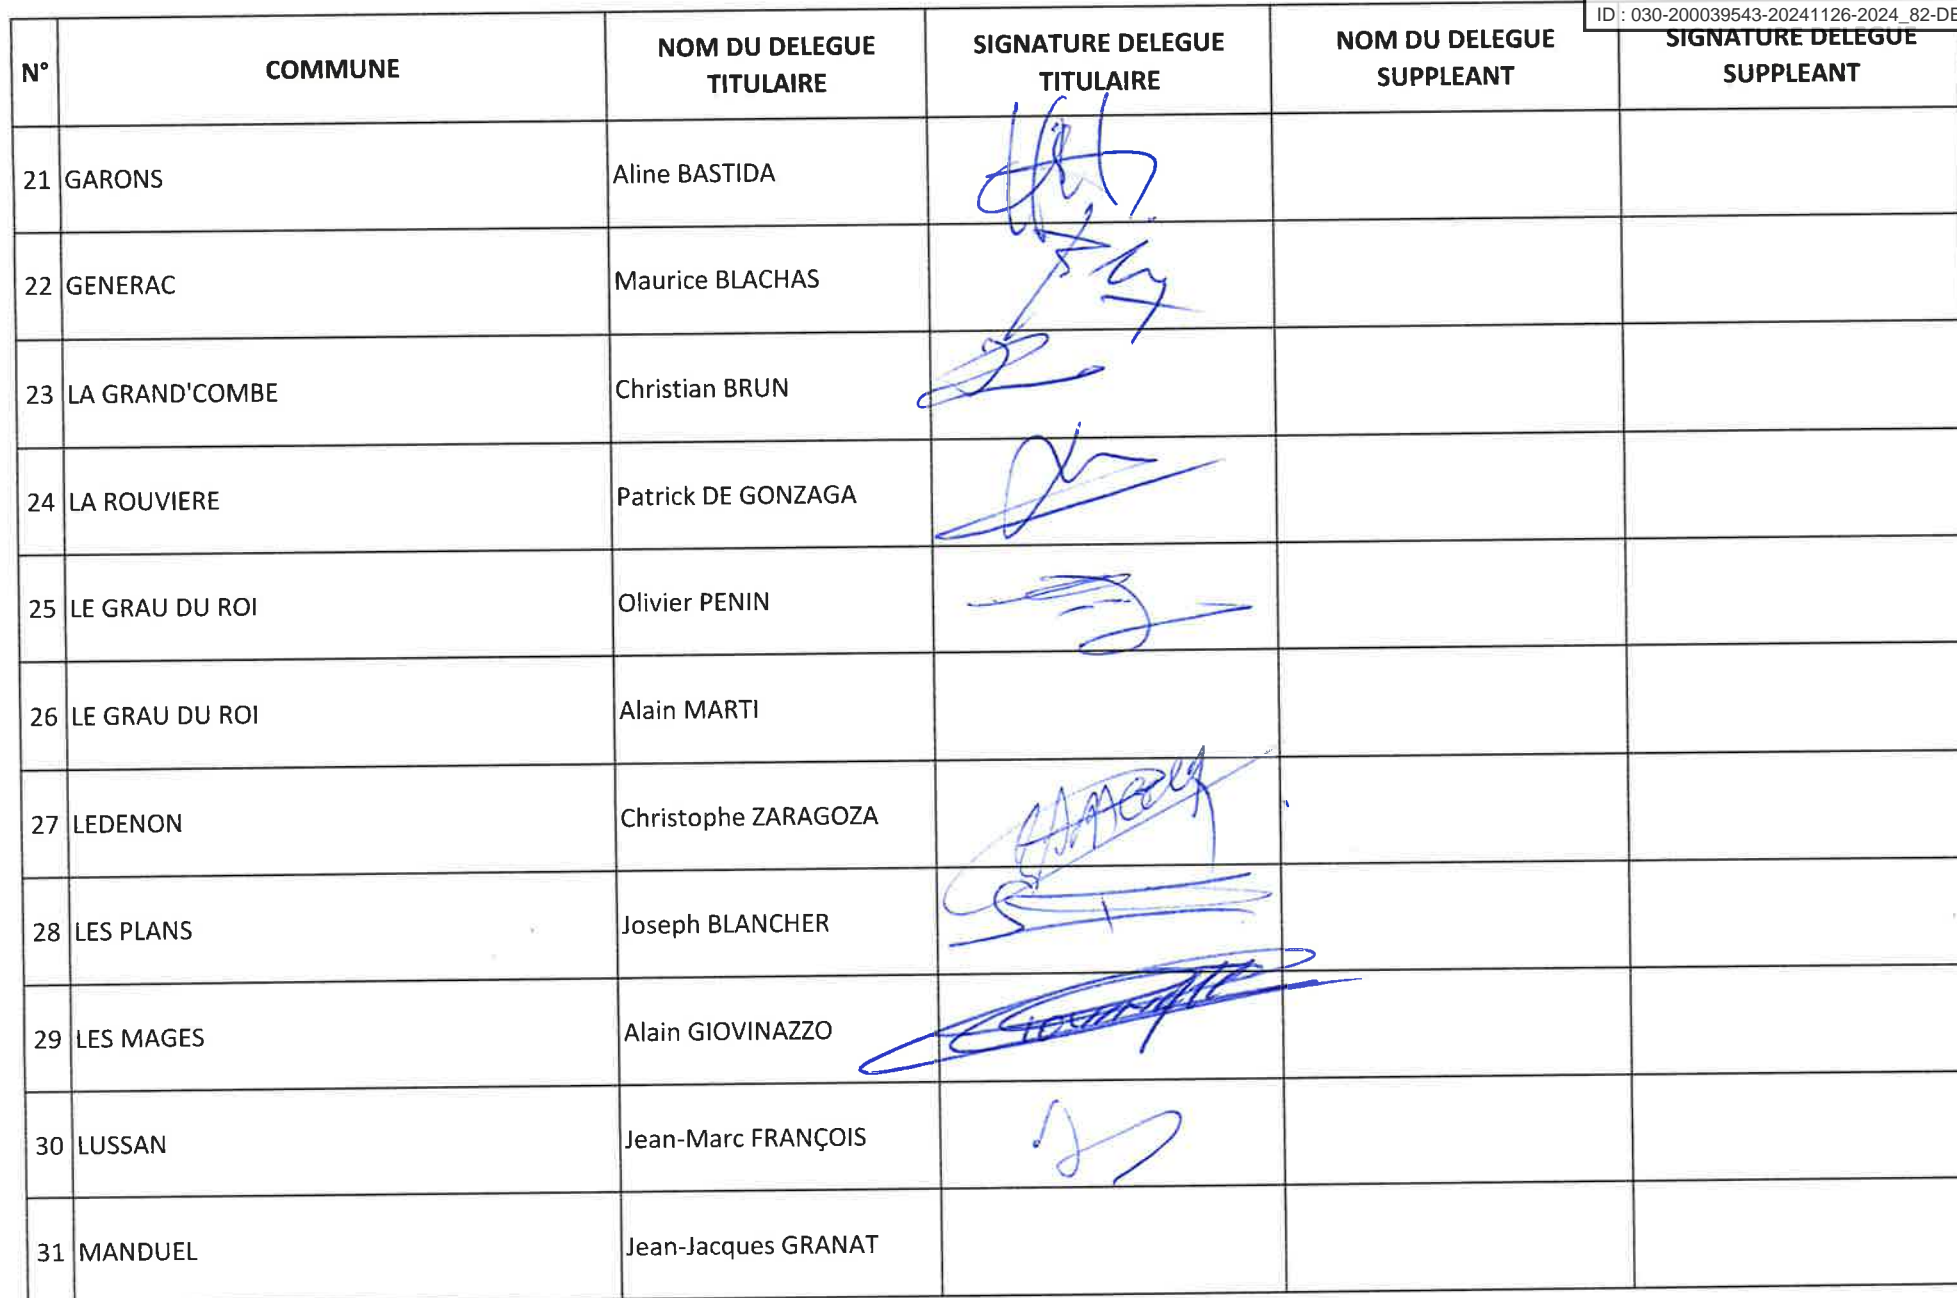 ID : 030-200039543-20241126-2024_82-DE
N° COMMUNE NOM DU DELEGUE TITULAIRE SIGNATURE DELEGUE TITULAIRE NOM DU DELEGUE SUPPLEANT SIGNATURE DELEGUE SUPPLEANT
21 GARONS Aline BASTIDA
22 GENERAC Maurice BLACHAS
23 LA GRAND'COMBE Christian BRUN
24 LA ROUVIERE Patrick DE GONZAGA
25 LE GRAU DU ROI Olivier PENIN
26 LE GRAU DU ROI Alain MARTI
27 LEDENON Christophe ZARAGOZA
28 LES PLANS Joseph BLANCHER
29 LES MAGES Alain GIOVINAZZO
30 LUSSAN Jean-Marc FRANÇOIS
31 MANDUEL Jean-Jacques GRANAT